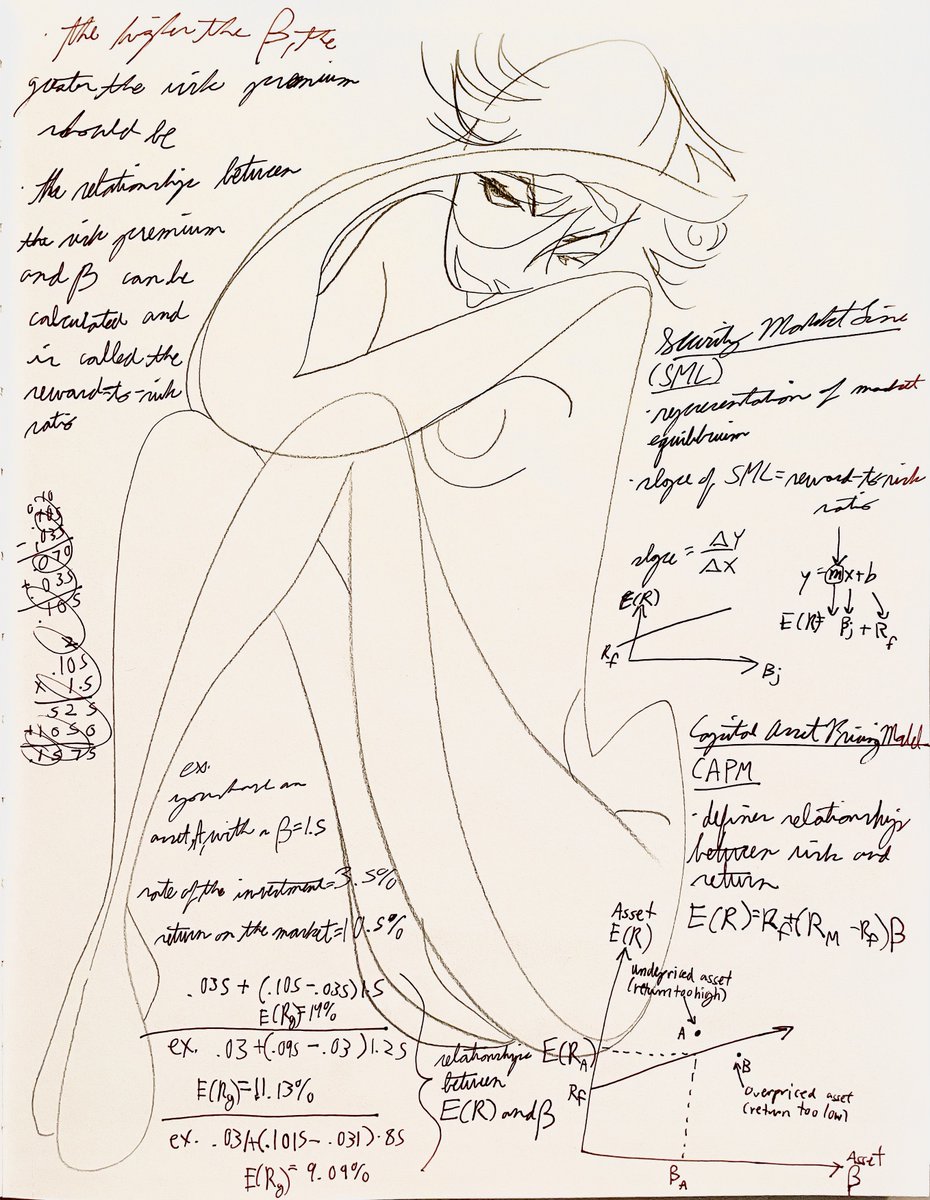 · the higher the β, the
greater the risk premium
should be
· the relationships between
the risk premium
and β can be
calculated and
is called the
reward-to-risk
ratio
Security Market Line
(SML)
· representation of market
equilibrium
· slope of SML = reward-to-risk
ratio
slope = ΔY/ΔX
y = mx+b
E(R) βj + Rf
E(R)
Rf
Bj
.105
x 1.5
525
+1050
.1575
Capital Asset Pricing Model
CAPM
· defines relationships
between risk and
return
E(R)=Rf+(RM-Rf)β
ex.
you have an
asset, A, with a β=1.5
rate of the investment=3.5%
return on the market=10.5%
.035 + (.105-.035)1.5
E(Rg)=14%
ex. .03+(.095-.03)1.25
E(Rg)=11.13%
ex. .031+(.1015-.031).85
E(Rg)=9.09%
relationships
between
E(R) and β
Asset
E(R)
underpriced asset
(return too high)
A
E(RA)
Rf
B
overpriced asset
(return too low)
BA
Asset
β